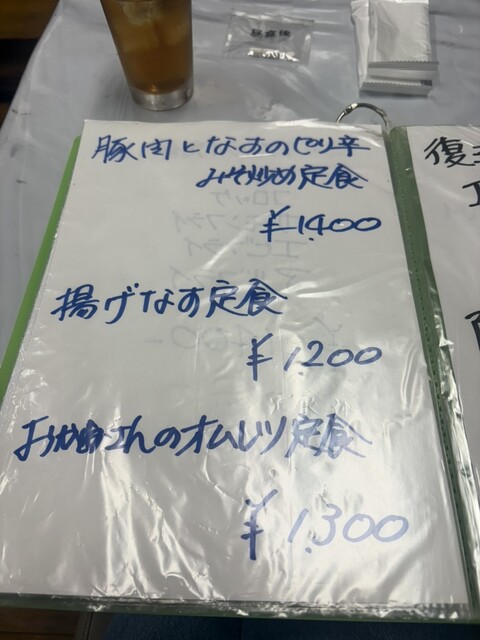 豚肉となすのピリ辛
みそ炒め定食
¥1,400
揚げなす定食
¥1,200
おかあさんのオムレツ定食
¥1,300
復